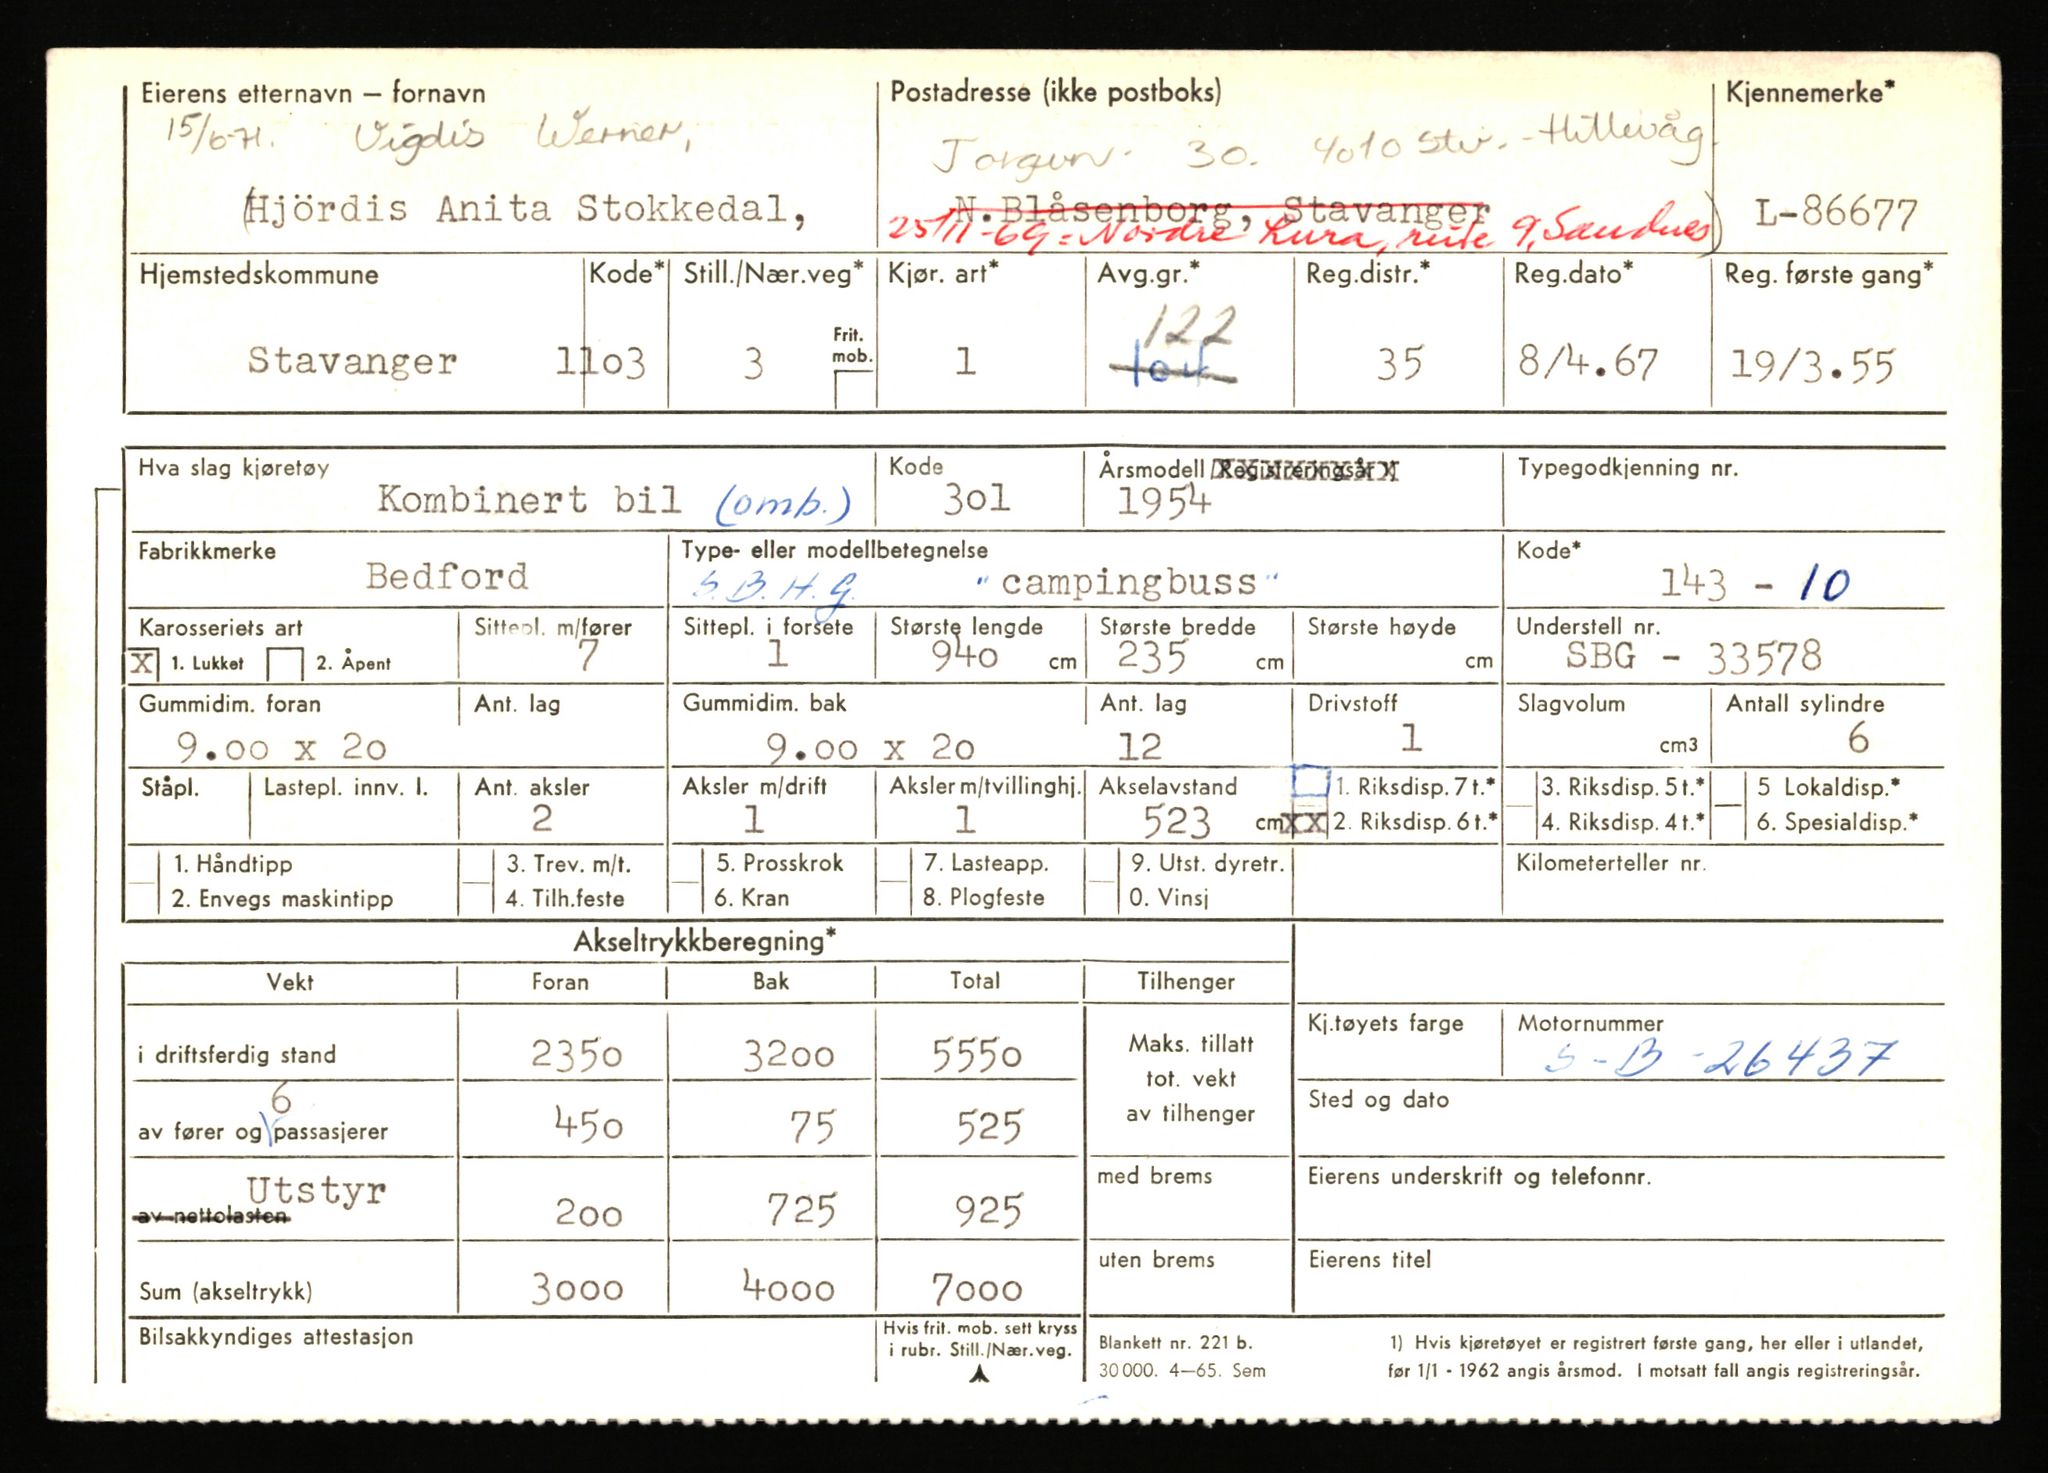 Eierens etternavn – fornavn
Postadresse (ikke postboks)
Kjennemerke*
15/6-71. Vigdis Werner,
30. 4010 Stv. - Hillevåg.
(Hjördis Anita Stokkedal,
N. Blåsenborg, Stavanger
L-86677
25/11-69 = Nordre Lura, rute 9, Sandnes)
Hjemstedskommune
Kode*
Still./Nær.veg*
Kjør. art*
Avg.gr.*
Reg.distr.*
Reg.dato*
Reg. første gang*
Stavanger
1103
3
Frit. mob.
1
122
104
35
8/4.67
19/3.55
Hva slag kjøretøy
Kode
Årsmodell Registreringsår
Typegodkjenning nr.
Kombinert bil (omb.)
301
1954
Fabrikkmerke
Type- eller modellbetegnelse
Kode*
Bedford
S.B.H.G. "campingbuss"
143 - 10
Karosseriets art
Sittepl. m/fører
Sittepl. i forsete
Største lengde
Største bredde
Største høyde
Understell nr.
X 1. Lukket 2. Åpent
7
1
940 cm
235 cm
cm
SBG - 33578
Gummidim. foran
Ant. lag
Gummidim. bak
Ant. lag
Drivstoff
Slagvolum
Antall sylindre
9.00 x 20
9.00 x 20
12
1
cm3
6
Ståpl.
Lastepl. innv. l.
Ant. aksler
Aksler m/drift
Aksler m/tvillinghj.
Akselavstand
1. Riksdisp. 7 t.*
3. Riksdisp. 5 t.*
5 Lokaldisp.*
2
1
1
523 cm
XX 2. Riksdisp. 6 t.*
4. Riksdisp. 4 t.*
6. Spesialdisp.*
1. Håndtipp
3. Trev. m/t.
5. Prosskrok
7. Lasteapp.
9. Utst. dyretr.
Kilometerteller nr.
2. Envegs maskintipp
4. Tilh.feste
6. Kran
8. Plogfeste
0. Vinsj
Akseltrykkberegning*
Vekt
Foran
Bak
Total
Tilhenger
Kj.tøyets farge
Motornummer
i driftsferdig stand
2350
3200
5550
Maks. tillatt
tot. vekt
av tilhenger
S-B-26437
6
av fører og passasjerer
450
75
525
Sted og dato
Utstyr
av nettolasten
200
725
925
med brems
Eierens underskrift og telefonnr.
Sum (akseltrykk)
3000
4000
7000
uten brems
Eierens titel
Bilsakkyndiges attestasjon
Hvis frit. mob. sett kryss
i rubr. Still./Nær.veg.
Blankett nr. 221 b.
30 000. 4–65. Sem
1) Hvis kjøretøyet er registrert første gang, her eller i utlandet,
før 1/1 - 1962 angis årsmod. I motsatt fall angis registreringsår.